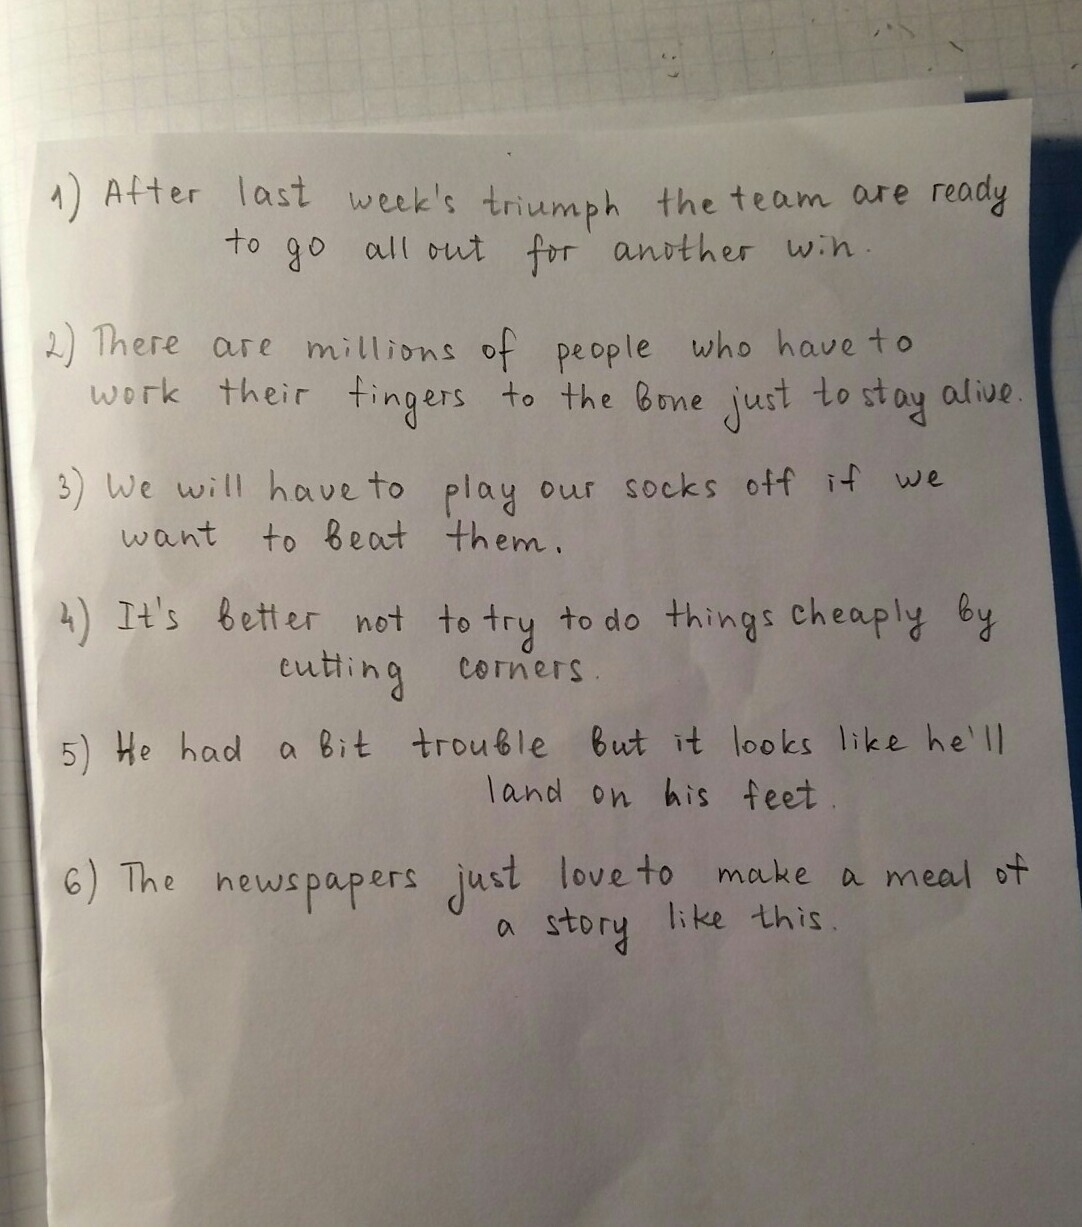 1) After last week's triumph the team are ready
to go all out for another win.
2) There are millions of people who have to
work their fingers to the bone just to stay alive.
3) We will have to play our socks off if we
want to beat them.
4) It's better not to try to do things cheaply by
cutting corners.
5) He had a bit trouble but it looks like he'll
land on his feet.
6) The newspapers just love to make a meal of
a story like this.